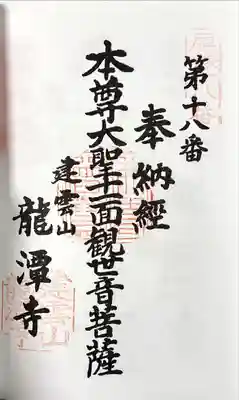 第十八番
奉納經
本尊大聖十一面観世音菩薩
建雲山
龍潭寺